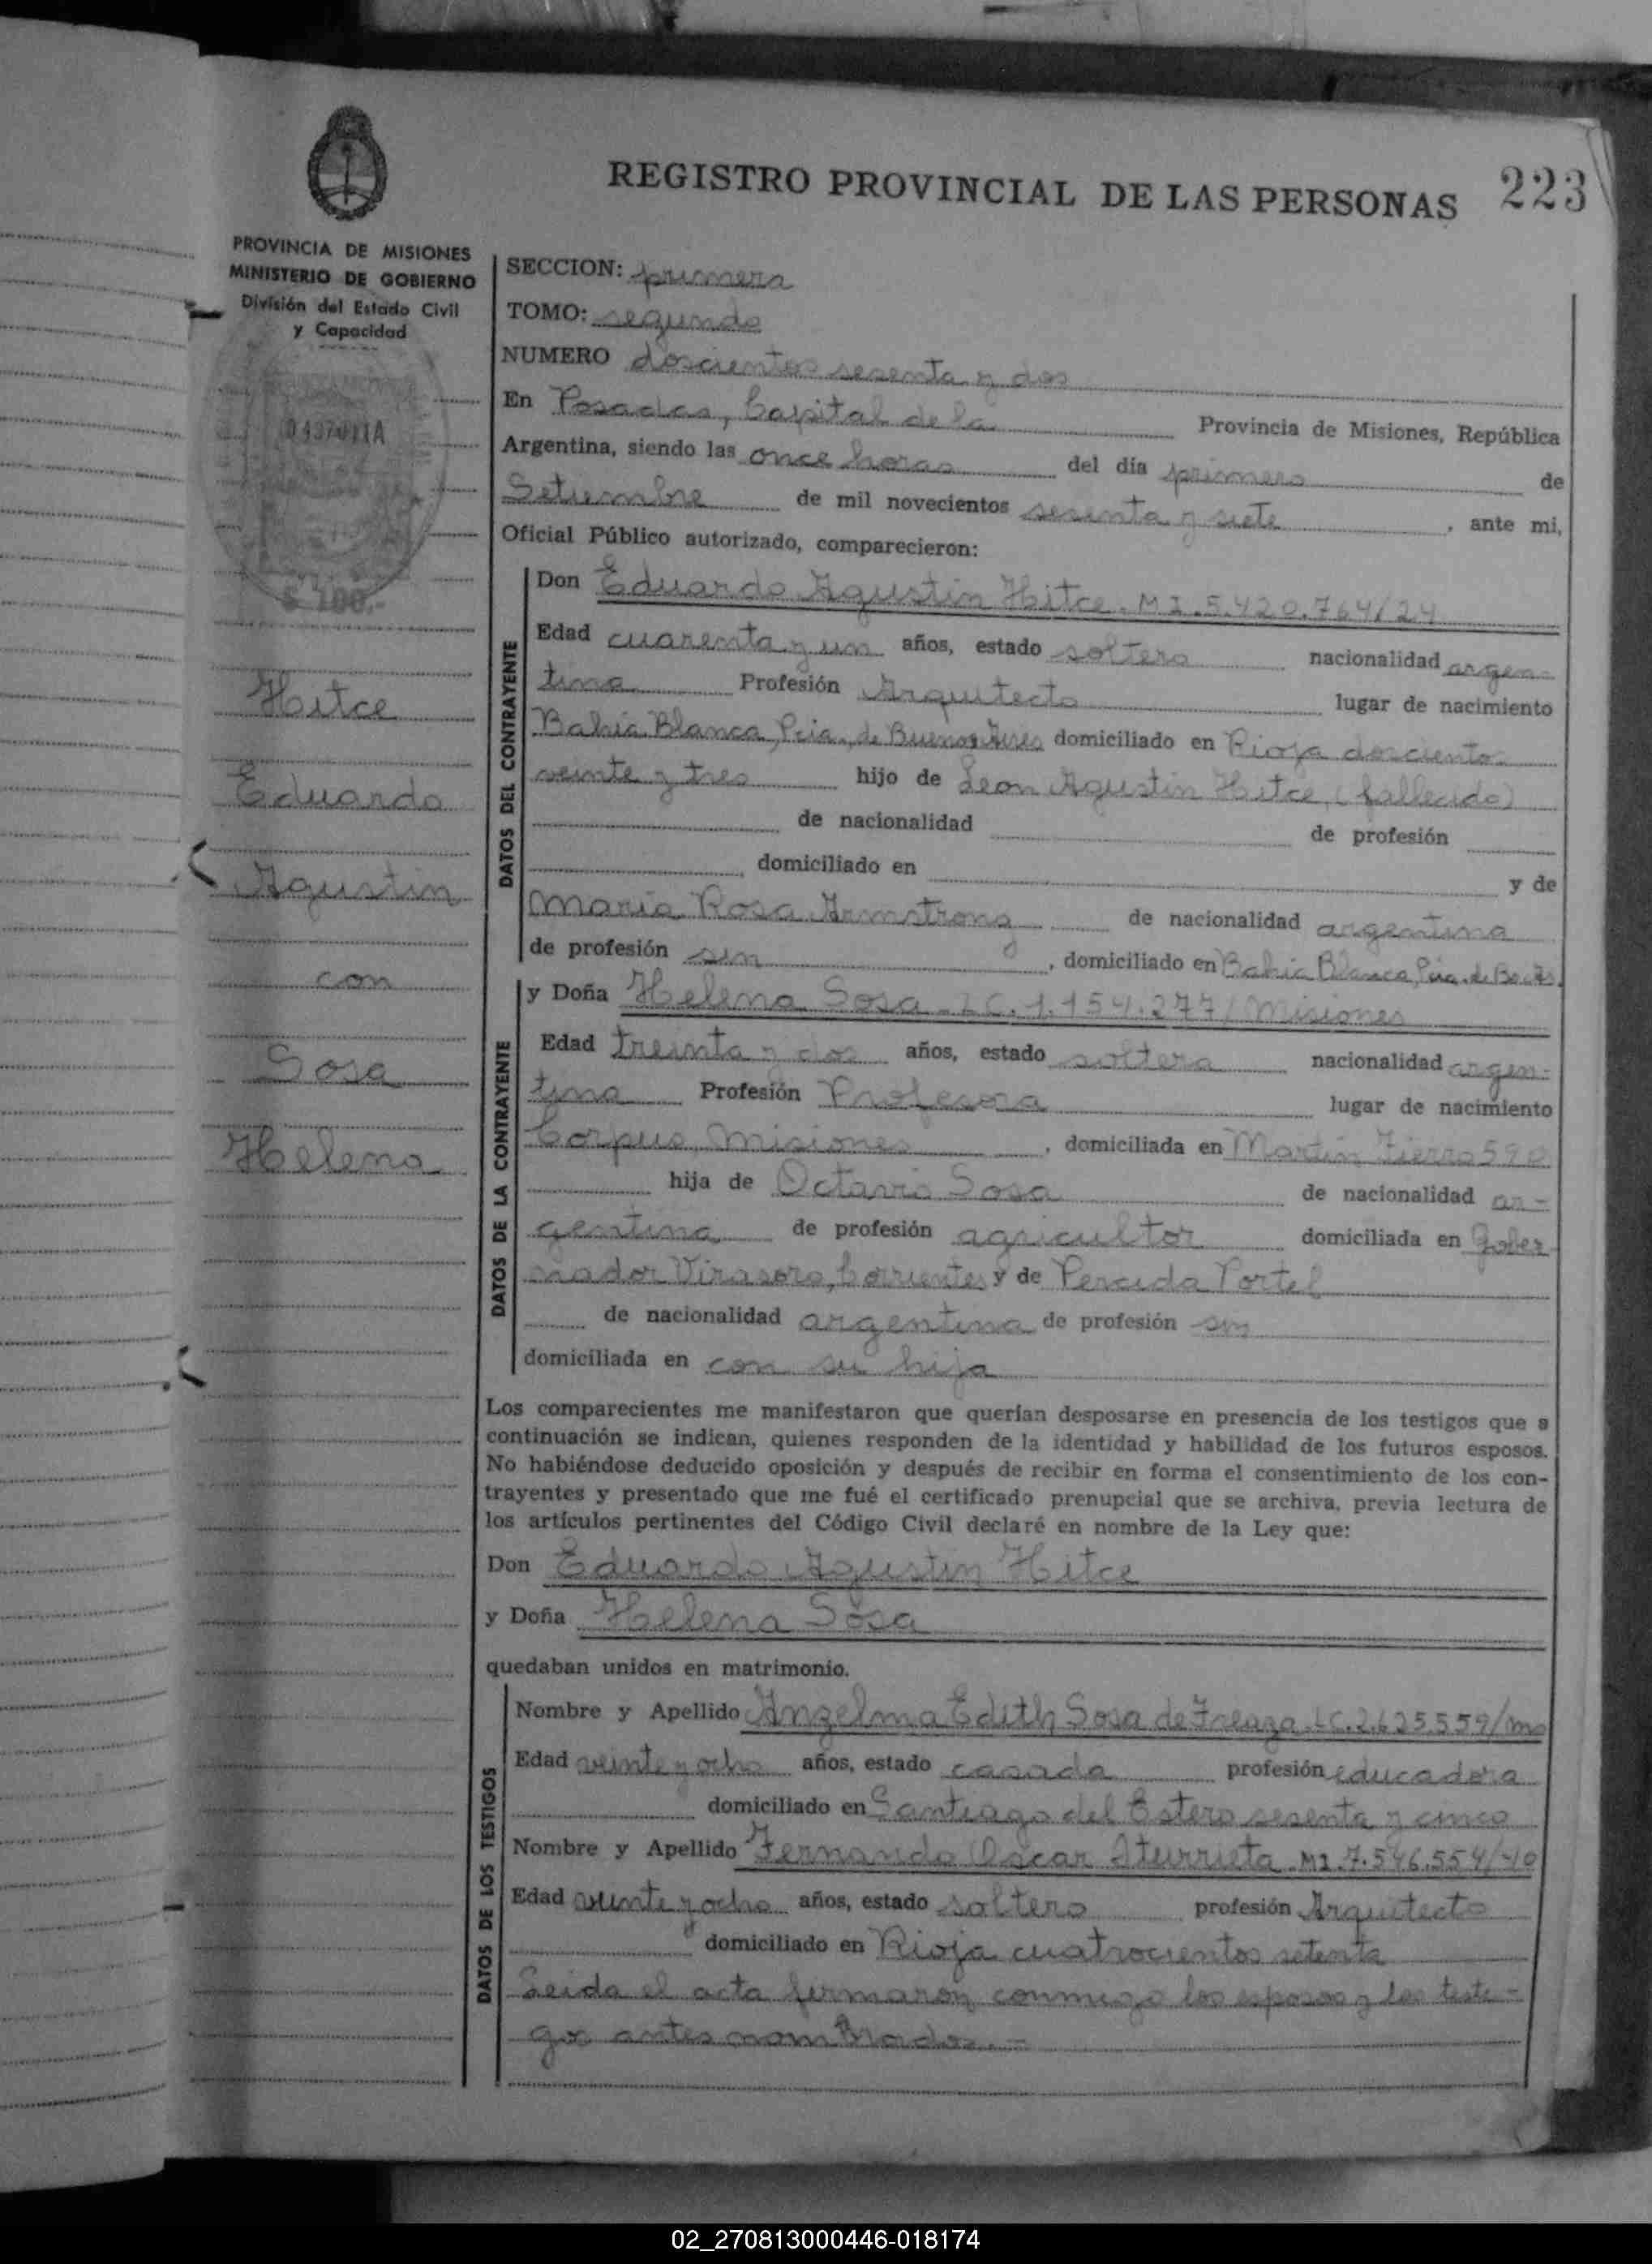 REGISTRO PROVINCIAL DE LAS PERSONAS 223
PROVINCIA DE MISIONES
MINISTERIO DE GOBIERNO
División del Estado Civil
y Capacidad
$ 100.-
Hitce
Eduardo
Agustin
con
Sosa
Helena
SECCION: primera
TOMO: segundo
NUMERO doscientos sesenta y dos
En Posadas, Capital de la Provincia de Misiones, República
Argentina, siendo las once horas del día primero de
Setiembre de mil novecientos sesenta y siete, ante mi,
Oficial Público autorizado, comparecieron:
DATOS DEL CONTRAYENTE
Don Eduardo Agustin Hitce. M I. 5.420.764/24
Edad cuarenta y un años, estado soltero nacionalidad argen-
tina Profesión Arquitecto lugar de nacimiento
Bahia Blanca, Pcia. de Buenos Aires domiciliado en Rioja doscientos
veinte y tres hijo de Leon Agustin Hitce, (fallecido)
de nacionalidad de profesión
, domiciliado en y de
Maria Rosa Armstrong de nacionalidad argentina
de profesión sin, domiciliado en Bahia Blanca, Pcia. de Bs. As.
DATOS DE LA CONTRAYENTE
y Doña Helena Sosa - LC. 1.154.277/Misiones
Edad treinta y dos años, estado soltera nacionalidad argen-
tina Profesión Profesora lugar de nacimiento
Corpus, Misiones, domiciliada en Martin Fierro 590
hija de Octavio Sosa de nacionalidad ar-
gentina de profesión agricultor domiciliada en Gober-
nador Virasoro, Corrientes y de Percida Portel
de nacionalidad argentina de profesión sin
domiciliada en con su hija
Los comparecientes me manifestaron que querían desposarse en presencia de los testigos que a
continuación se indican, quienes responden de la identidad y habilidad de los futuros esposos.
No habiéndose deducido oposición y después de recibir en forma el consentimiento de los con-
trayentes y presentado que me fué el certificado prenupcial que se archiva, previa lectura de
los artículos pertinentes del Código Civil declaré en nombre de la Ley que:
Don Eduardo Agustin Hitce
y Doña Helena Sosa
quedaban unidos en matrimonio.
DATOS DE LOS TESTIGOS
Nombre y Apellido Anzelma Edith Sosa de Freaza. LC. 2.625.559/
Edad veinte y ocho años, estado casada profesión educadora
domiciliado en Santiago del Estero sesenta y cinco
Nombre y Apellido Fernando Oscar Iturrieta. MI. 7.546.554/40
Edad veinte y ocho años, estado soltero profesión Arquitecto
domiciliado en Rioja cuatrocientos setenta
Leida el acta firmaron conmigo los esposos y los testi-
gos antes nombrados. -
02_270813000446-018174